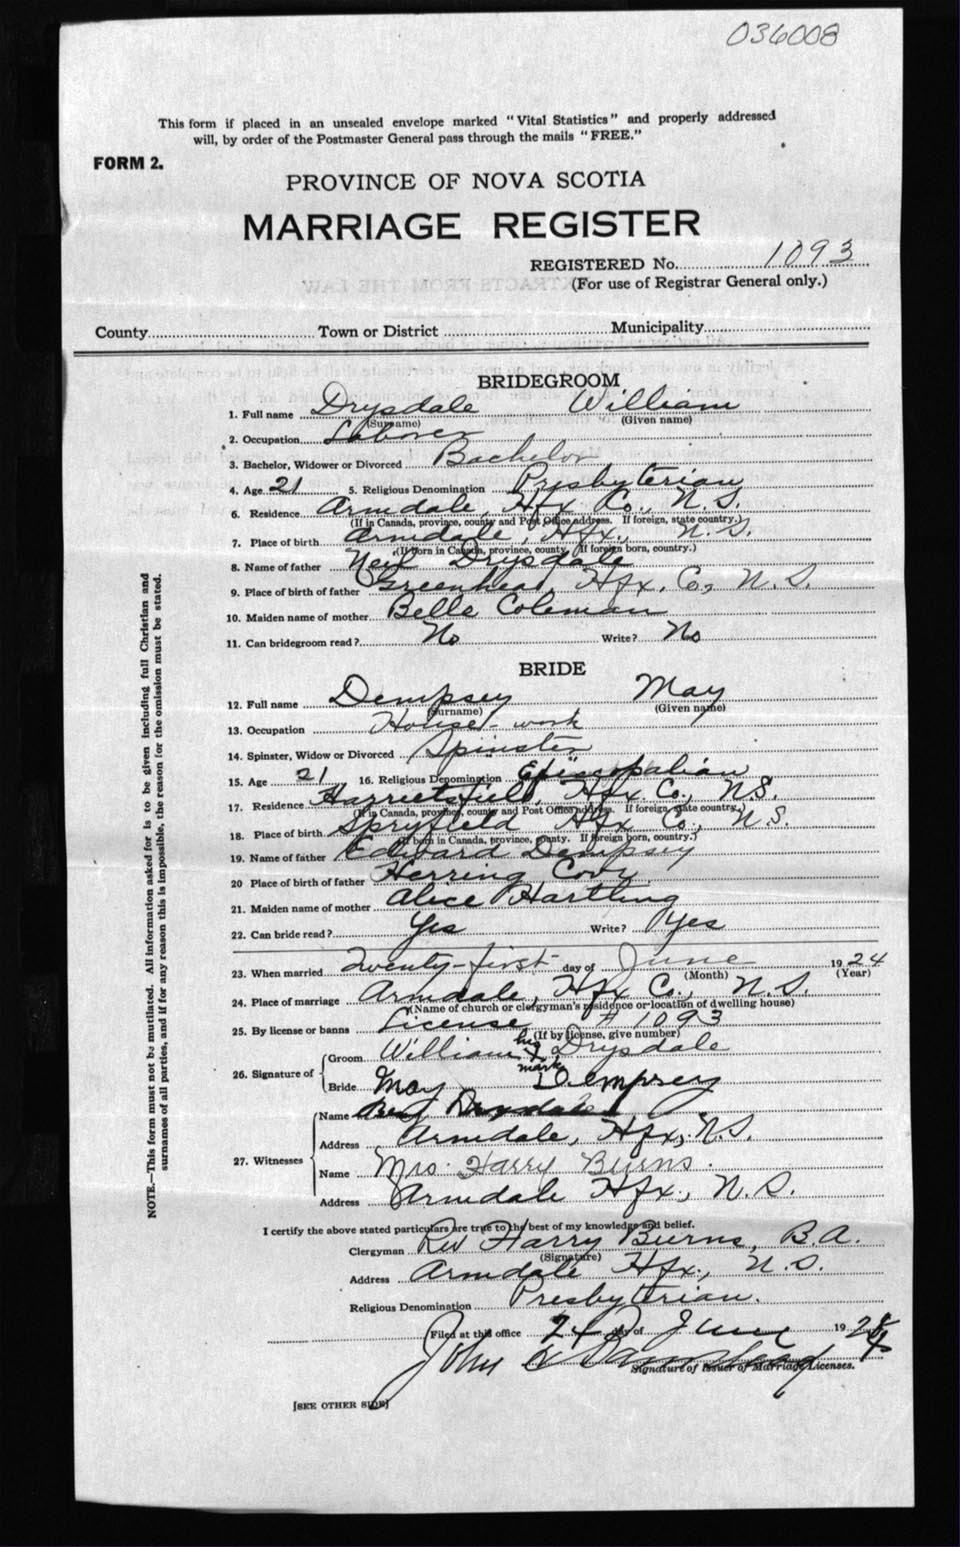 036008
This form if placed in an unsealed envelope marked "Vital Statistics" and properly addressed
will, by order of the Postmaster General pass through the mails "FREE."
FORM 2.
PROVINCE OF NOVA SCOTIA
MARRIAGE REGISTER
REGISTERED No. 1093
(For use of Registrar General only.)
County Town or District Municipality
BRIDEGROOM
1. Full name Drysdale William
(Surname) (Given name)
2. Occupation Laborer
3. Bachelor, Widower or Divorced Bachelor
4. Age 21 5. Religious Denomination Presbyterian
6. Residence Armdale, Hfx Co., N.S.
(If in Canada, province, county and Post Office address. If foreign, state country.)
7. Place of birth Armdale, Hfx., N.S.
(If born in Canada, province, county. If foreign born, country.)
8. Name of father Neil Drysdale
9. Place of birth of father Greenhead, Hfx. Co., N.S.
10. Maiden name of mother Belle Coleman
11. Can bridegroom read? No Write? No
BRIDE
12. Full name Dempsey May
(Surname) (Given name)
13. Occupation House-work
14. Spinster, Widow or Divorced Spinster
15. Age 21 16. Religious Denomination Episcopalian
17. Residence Harrietsfield, Hfx Co., N.S.
(If in Canada, province, county and Post Office address. If foreign, state country.)
18. Place of birth Spryfield Hfx Co., N.S.
(If born in Canada, province, county. If foreign born, country.)
19. Name of father Edward Dempsey
20 Place of birth of father Herring Cove
21. Maiden name of mother Alice Hartling
22. Can bride read? Yes Write? Yes
23. When married Twenty-first day of June 1924
(Month) (Year)
24. Place of marriage Armdale, Hfx Co., N.S.
(Name of church or clergyman's residence or location of dwelling house)
25. By license or banns License # 1093
(If by license, give number)
26. Signature of Groom William his X mark Drysdale
Bride May Dempsey
27. Witnesses Name Drysdale
Address Armdale, Hfx, N.S.
Name Mrs. Harry Burns.
Address Armdale Hfx., N.S.
I certify the above stated particulars are true to the best of my knowledge and belief.
Clergyman Rev Harry Burns, B.A.
(Signature)
Address Armdale Hfx., N.S.
Religious Denomination Presbyterian.
Filed at this office 24 day of June 1924
John
Signature of Issuer of Marriage Licenses.
[SEE OTHER SIDE]
NOTE.—This form must not be mutilated. All information asked for is to be given including full Christian and
surnames of all parties, and if for any reason this is impossible, the reason for the omission must be stated.